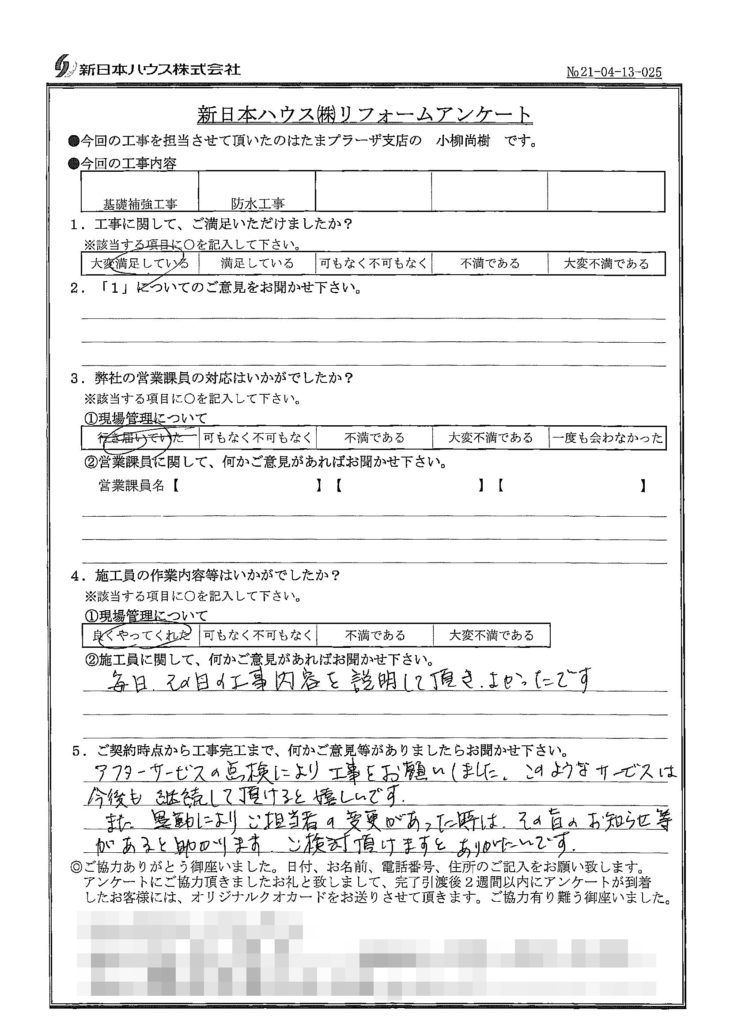 新日本ハウス株式会社
№21-04-13-025
新日本ハウス㈱リフォームアンケート
●今回の工事を担当させて頂いたのはたまプラーザ支店の 小柳尚樹 です。
●今回の工事内容
基礎補強工事 防水工事
1．工事に関して、ご満足いただけましたか？
※該当する項目に○を記入して下さい。
大変満足している 満足している 可もなく不可もなく 不満である 大変不満である
2．「1」についてのご意見をお聞かせ下さい。
3．弊社の営業課員の対応はいかがでしたか？
※該当する項目に○を記入して下さい。
①現場管理について
行き届いていた 可もなく不可もなく 不満である 大変不満である 一度も会わなかった
②営業課員に関して、何かご意見があればお聞かせ下さい。
営業課員名【 】【 】【 】
4．施工員の作業内容等はいかがでしたか？
※該当する項目に○を記入して下さい。
①現場管理について
良くやってくれた 可もなく不可もなく 不満である 大変不満である
②施工員に関して、何かご意見があればお聞かせ下さい。
毎日、その日の工事内容を説明して頂き、よかったです
5．ご契約時点から工事完工まで、何かご意見等がありましたらお聞かせ下さい。
アフターサービスの点検により工事をお願いしました。このようなサービスは
今後も継続して頂けると嬉しいです。
また異動によりご担当者の変更があった時は、その旨のお知らせ等
があると助かります。ご検討頂けますとありがたいです。
◎ご協力ありがとう御座いました。日付、お名前、電話番号、住所のご記入をお願い致します。
アンケートにご協力頂きましたお礼と致しまして、完了引渡後2週間以内にアンケートが到着
したお客様には、オリジナルクオカードをお送りさせて頂きます。ご協力有り難う御座いました。